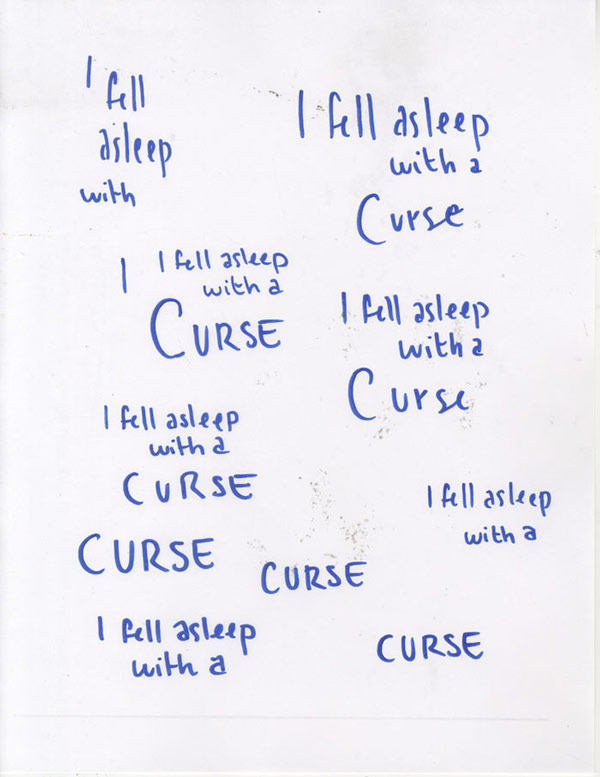 I
fell
asleep
with
I fell asleep
with a
Curse
I
I fell asleep
with a
CURSE
I fell asleep
with a
Curse
I fell asleep
with a
CURSE
I fell asleep
with a
CURSE
CURSE
I fell asleep
with a
CURSE